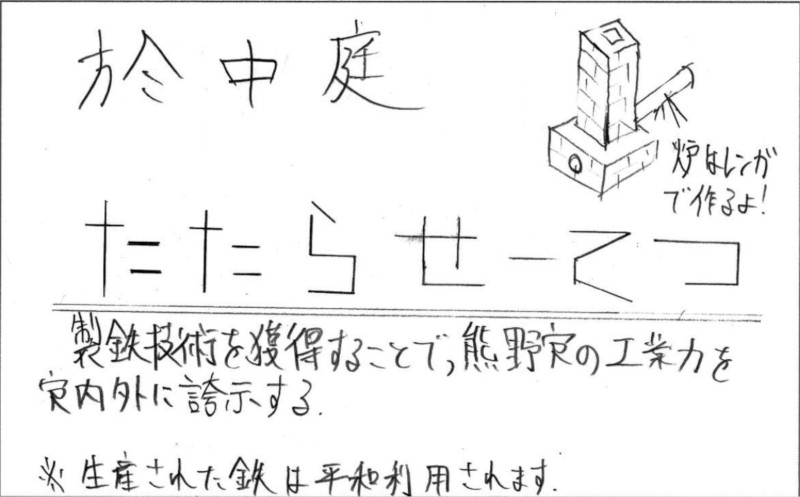 於中庭
炉はレンガ
で作るよ!
たたらせーてつ
製鉄技術を獲得することで、熊野寮の工業力を
寮内外に誇示する.
※生産された鉄は平和利用されます.